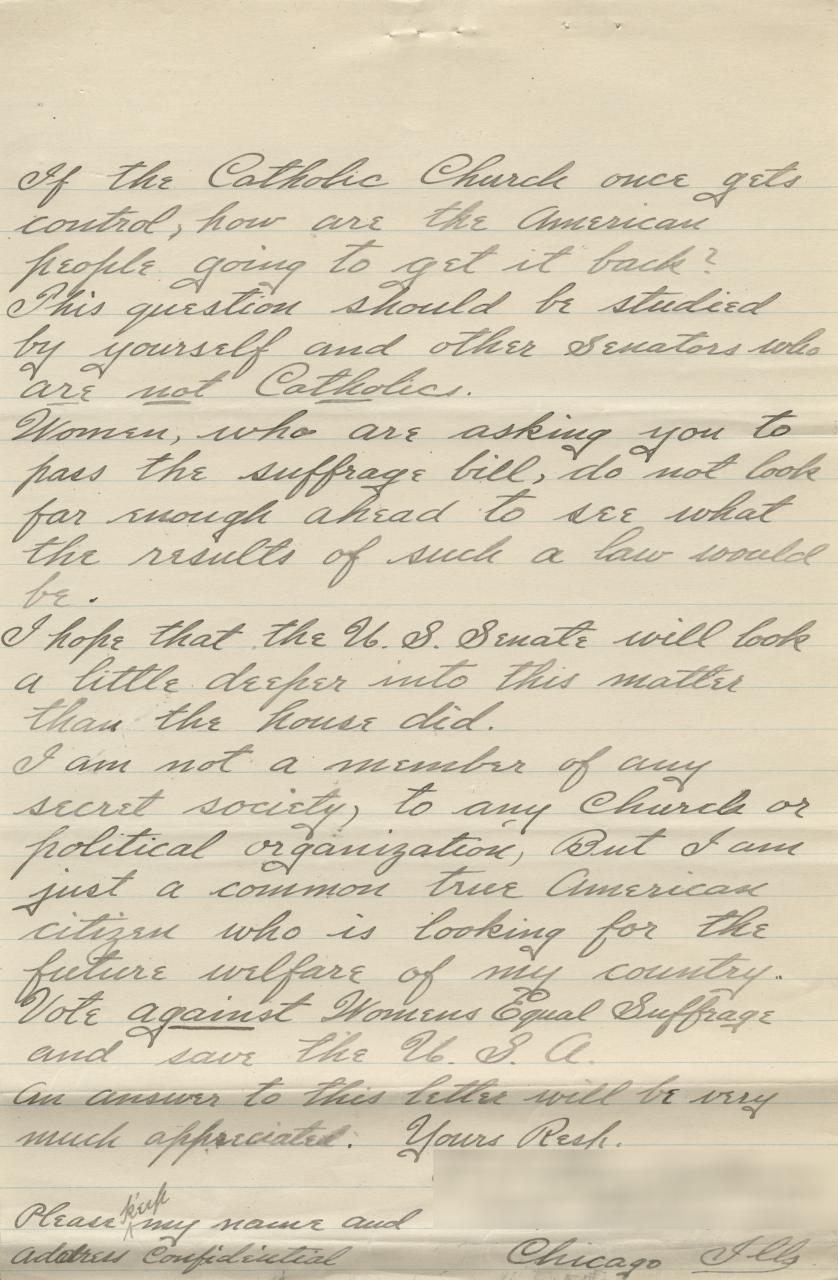 If the Catholic Church once gets
control, how are the American
people going to get it back?
This question should be studied
by yourself and other Senators who
are not Catholics.
Women, who are asking you to
pass the suffrage bill, do not look
far enough ahead to see what
the results of such a law would
be.
I hope that the U. S. Senate will look
a little deeper into this matter
than the house did.
I am not a member of any
secret society, to any Church or
political organization, But I am
just a common true American
citizen who is looking for the
future welfare of my country.
Vote against Womens Equal Suffrage
and save the U. S. A.
An answer to this letter will be very
much appreciated. Yours Resp.
Please keep my name and
address Confidential Chicago Ills